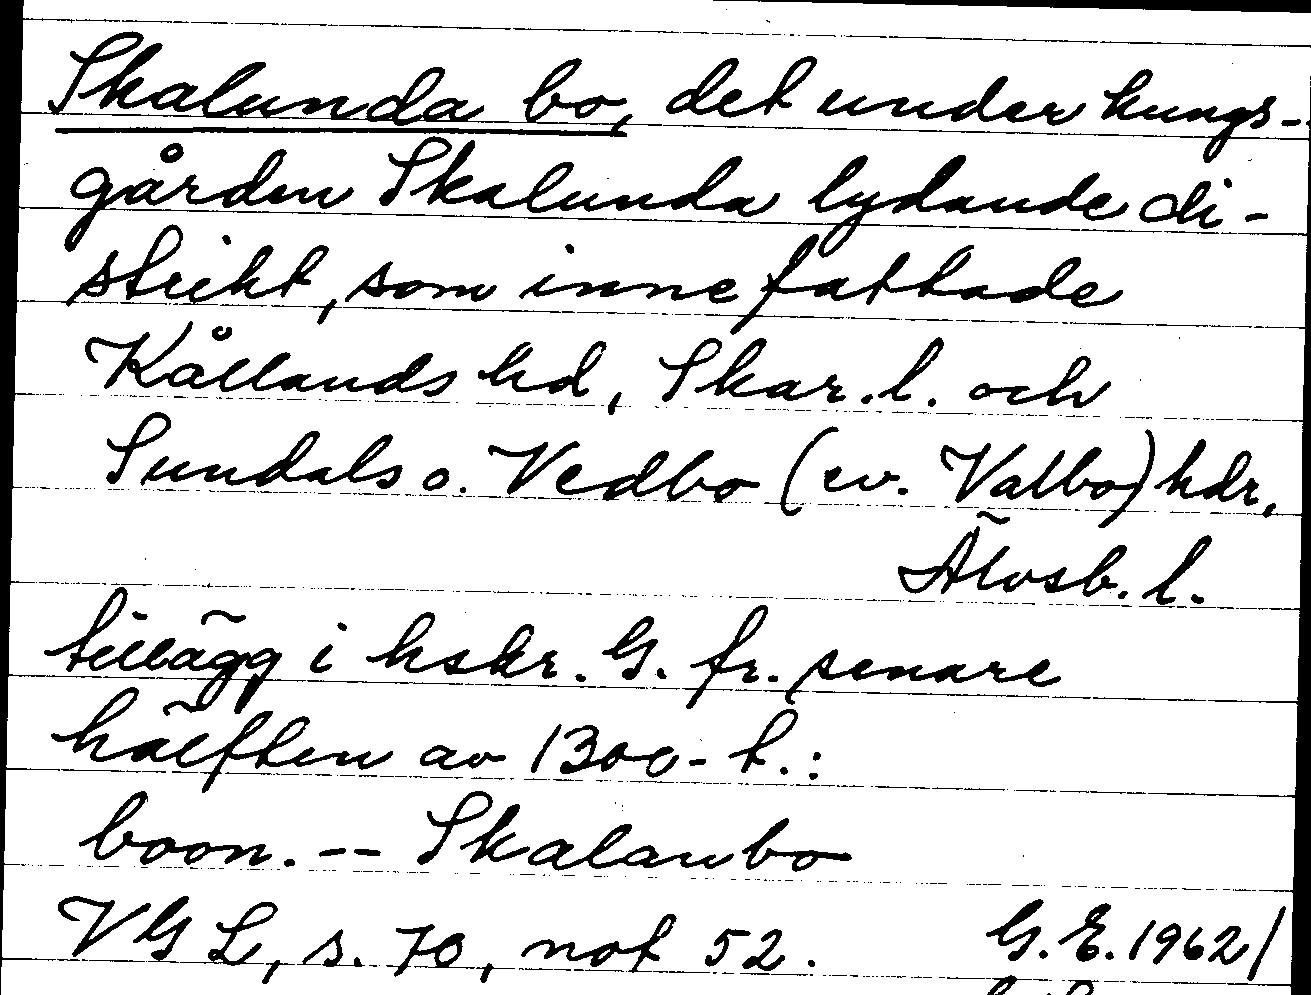 Skalunda bo, det under kungs-
gården Skalunda lydande di-
strikt, som innefattade
Kållands hd, Skar. l. och
Sundals o. Vedbo (ev. Valbo) hdr,
Älvsb. l.
tillägg i hskr. G. fr. senare
hälften av 1300-t.:
boon. -- Skalanbo
VGL, s. 70, not 52. G.E. 1962/